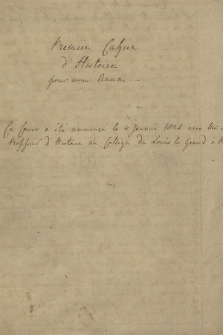 Premier Cahier
d'Histoire
pour mon
Ce Cours a été commencé le 4 Janvier 18 avec Mr
Professeur d'Histoire au Collège de Louis le Grand à